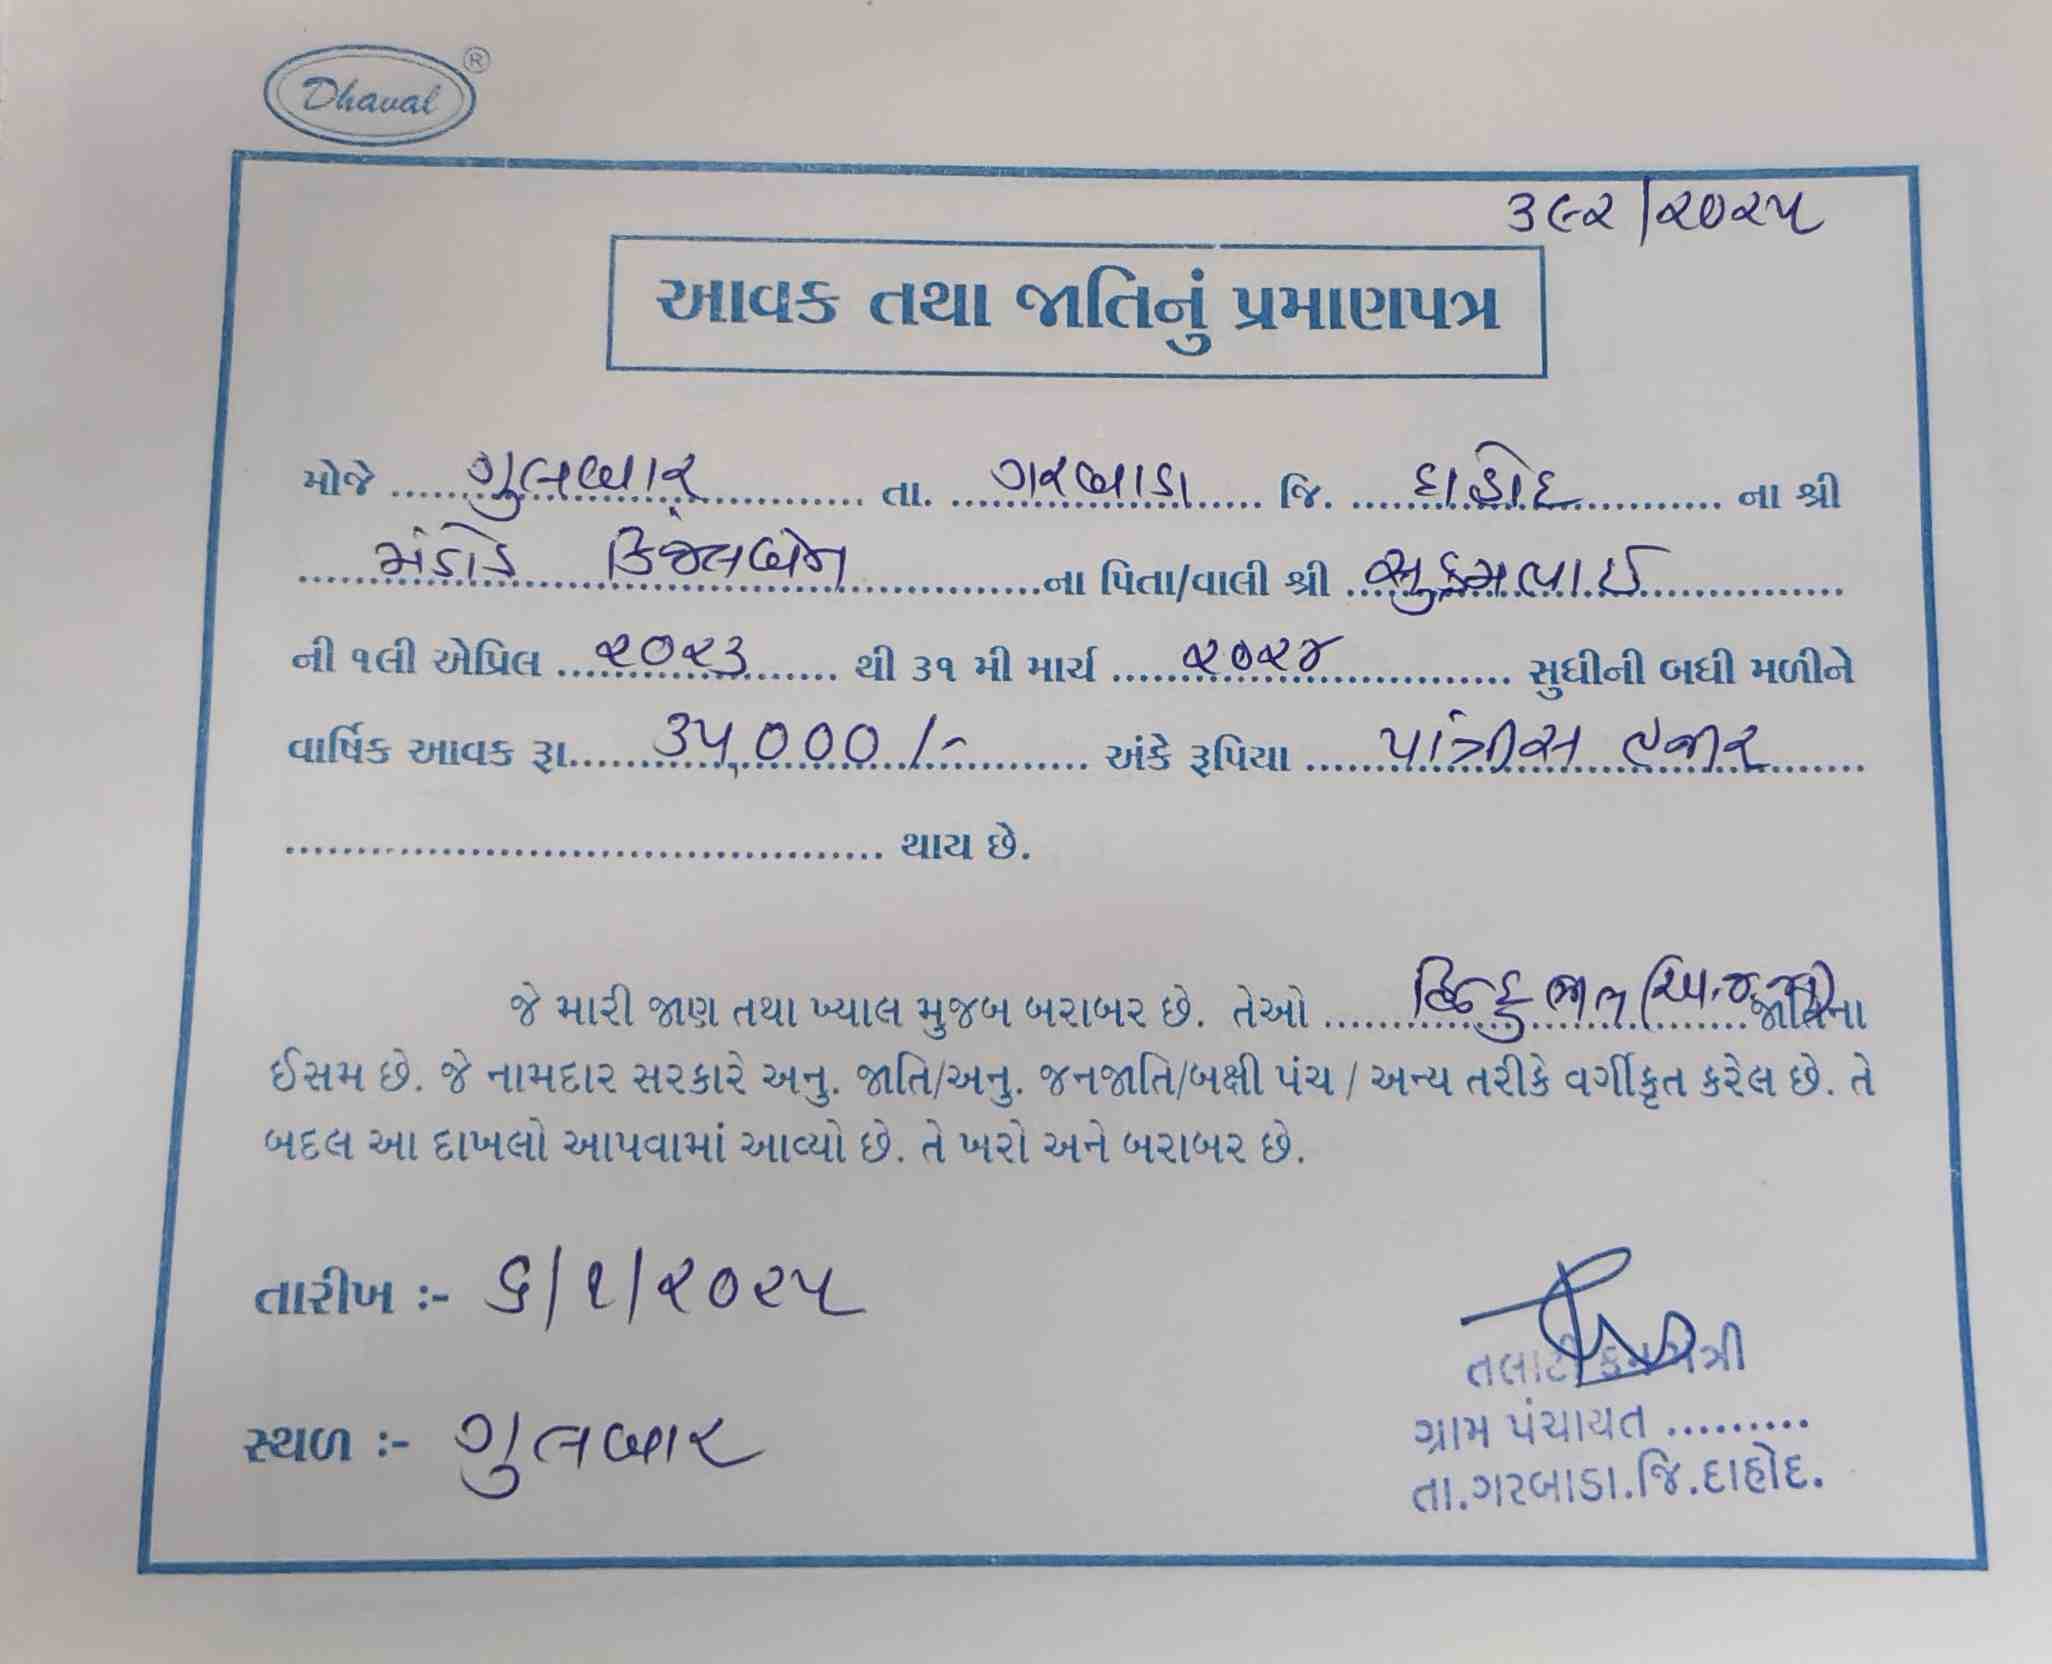 Dhaval ®
૩૯૨/૨૦૨૫
આવક તથા જાતિનું પ્રમાણપત્ર
મોજે ગુલબાર તા. ગરબાડા જિ. દાહોદ ના શ્રી
મંડોડ કિંજલબેન ના પિતા/વાલી શ્રી સુકમભાઈ
ની ૧લી એપ્રિલ ૨૦૨૩ થી ૩૧ મી માર્ચ ૨૦૨૪ સુધીની બધી મળીને
વાર્ષિક આવક રૂા. ૩૫,૦૦૦/- અંકે રૂપિયા પાંત્રીસ હજાર
થાય છે.
જે મારી જાણ તથા ખ્યાલ મુજબ બરાબર છે. તેઓ હિન્દુ ભીલ (અ.જ.જા) જાતિના
ઈસમ છે. જે નામદાર સરકારે અનુ. જાતિ/અનુ. જનજાતિ/બક્ષી પંચ / અન્ય તરીકે વર્ગીકૃત કરેલ છે. તે
બદલ આ દાખલો આપવામાં આવ્યો છે. તે ખરો અને બરાબર છે.
તારીખ :- ૬/૧/૨૦૨૫
તલાટી કમ મંત્રી
ગ્રામ પંચાયત .........
સ્થળ :- ગુલબાર
તા.ગરબાડા.જિ.દાહોદ.